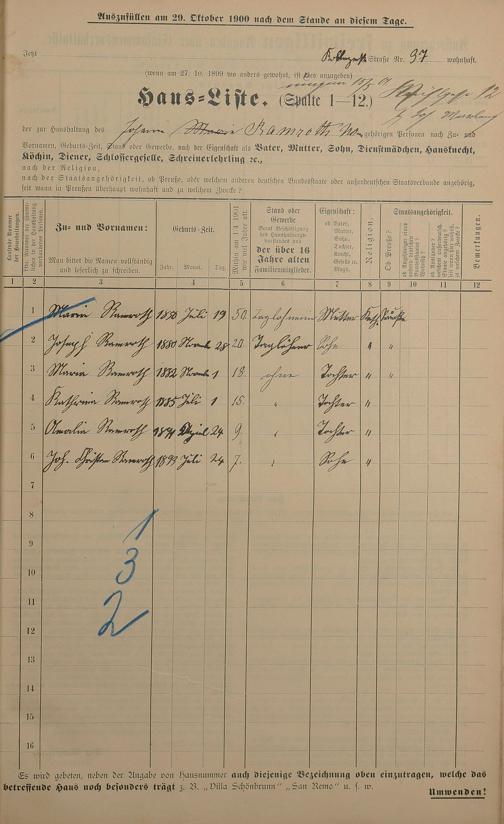 Auszufüllen am 29. Oktober 1900 nach dem Stande an diesem Tage.
Jetzt Straße Nr. 37 wohnhaft.
(wenn am 27. 10. 1899 wo anders gewohnt, ist dies anzugeben)
Haus=Liste. (Spalte 1—12.)
der zur Haushaltung des Johann Marie Ramroth gehörigen Personen nach Zu= und
Vornamen, Geburts=Zeit, Stand oder Gewerbe, nach der Eigenschaft als Vater, Mutter, Sohn, Dienstmädchen, Hausknecht,
Köchin, Diener, Schlossergeselle, Schreinerlehrling ꝛc.,
nach der Religion,
nach der Staatsangehörigkeit, ob Preuße, oder welchem anderen deutschen Bundesstaate oder außerdeutschen Staatsverbande angehörig,
seit wann in Preußen überhaupt wohnhaft und zu welchem Zwecke?
Zu= und Vornamen:
Man bittet die Namen vollständig und leserlich zu schreiben.
Geburts=Zeit.
Jahr. Monat. Tag.
Mithin am 1/4 1901 wie viel Jahre alt
Stand oder Gewerbe
der über 16 Jahre alten Familienmitglieder.
Eigenschaft:
ob Vater, Mutter, Sohn, Tochter, Knecht, Geselle oder Magd.
Religion.
Staatsangehörigkeit.
Ob Preuße?
Bemerkungen.
1 2 3 4 5 6 7 8 9 10 11 12
1 Maria Ramroth 1850 Juli 19 50. Taglöhnerin Mutter Kath.
2 Joseph Ramroth 1880 28 20. Taglöhner Sohn " "
3 Maria Ramroth 1882 1 18. ohne Tochter " "
4 Katharina Ramroth 1885 Juli 1 15. " Tochter "
5 Amalia Ramroth 1891 April 24 9. " Tochter "
6 Joh. Christian Ramroth 1893 Juli 24 7. " Sohn "
7
8
9
10
11
12
13
14
15
16
1
3
2
Es wird gebeten, neben der Angabe von Hausnummer auch diejenige Bezeichnung oben einzutragen, welche das
betreffende Haus noch besonders trägt z. B. „Villa Schönbrunn" „San Remo" u. s. w.
Umwenden!